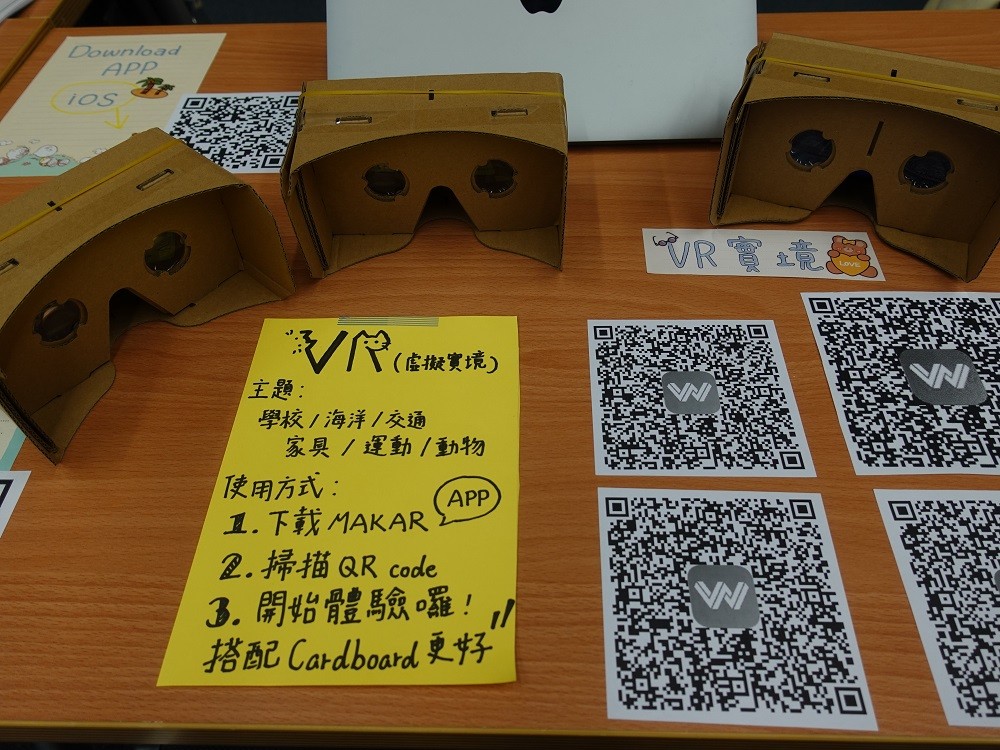 Download
APP
iOS
VR實境
LOVE
VR(虛擬實境)
主題:
學校/海洋/交通
家具/運動/動物
使用方式:
1.下載MAKAR APP
2.掃描QR code
3.開始體驗囉!
搭配Cardboard更好